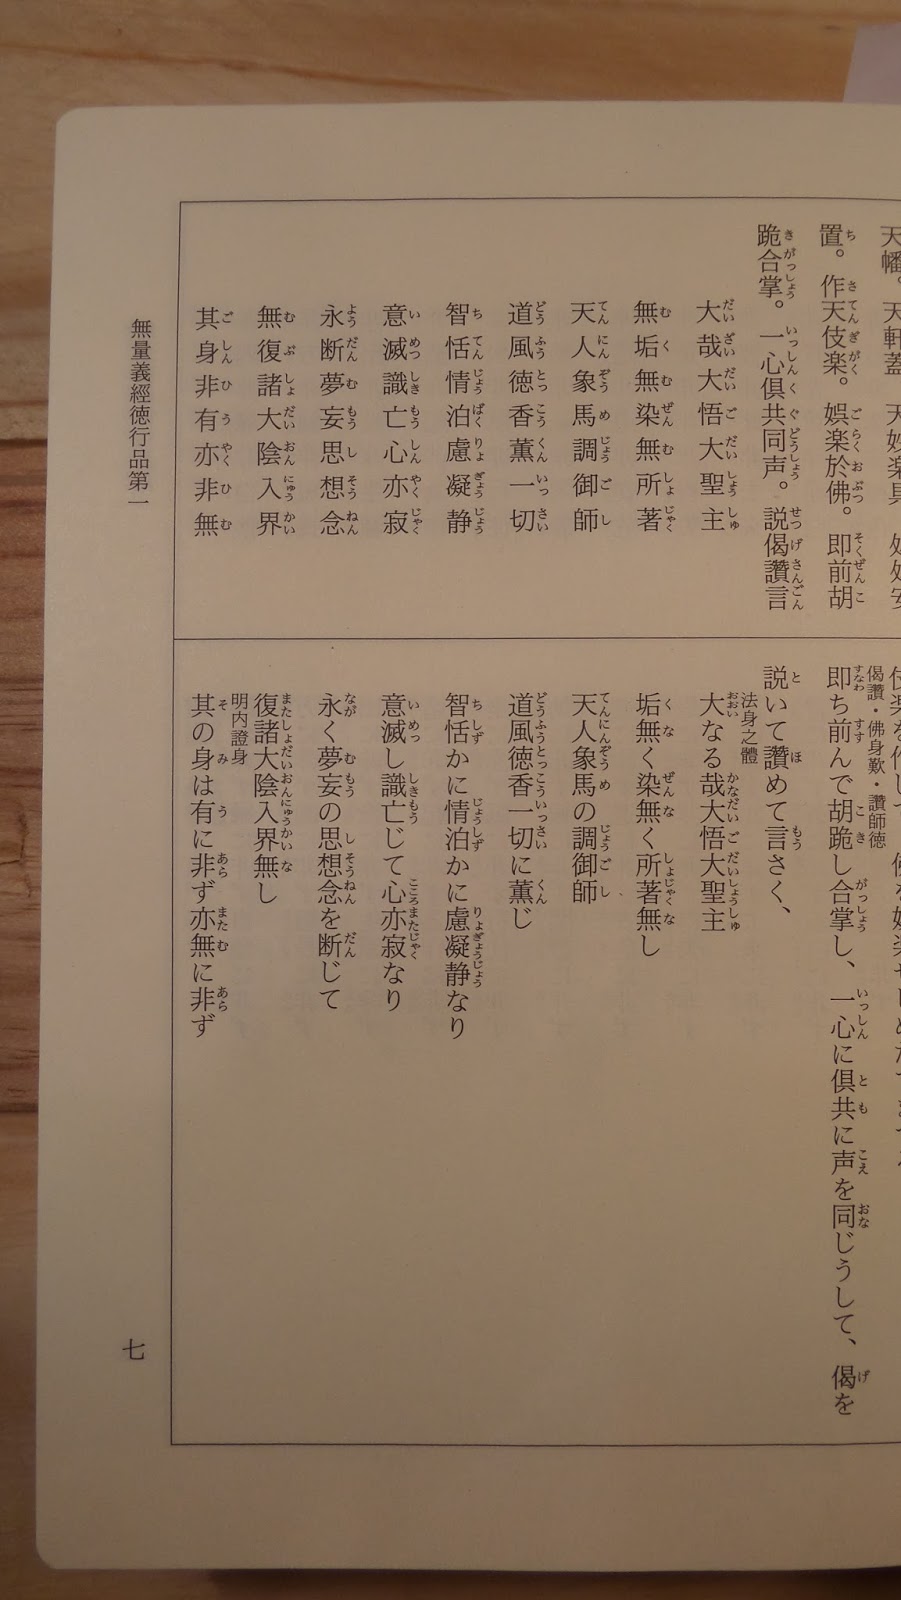 置。作天伎楽。娯楽於佛。即前胡
跪合掌。一心倶共同声。説偈讚言
大哉大悟大聖主
無垢無染無所著
天人象馬調御師
道風徳香薫一切
智恬情泊慮凝静
意滅識亡心亦寂
永断夢妄思想念
無復諸大陰入界
其身非有亦非無
偈讚・佛身歎・讚師徳
即ち前んで胡跪し合掌し、一心に倶共に声を同じうして、偈を
説いて讚めて言さく、
法身之體
大なる哉大悟大聖主
垢無く染無く所著無し
天人象馬の調御師
道風徳香一切に薫じ
智恬かに情泊かに慮凝静なり
意滅し識亡じて心亦寂なり
永く夢妄の思想念を断じて
復諸大陰入界無し
明内證身
其の身は有に非ず亦無に非ず
無量義經徳行品第一
七